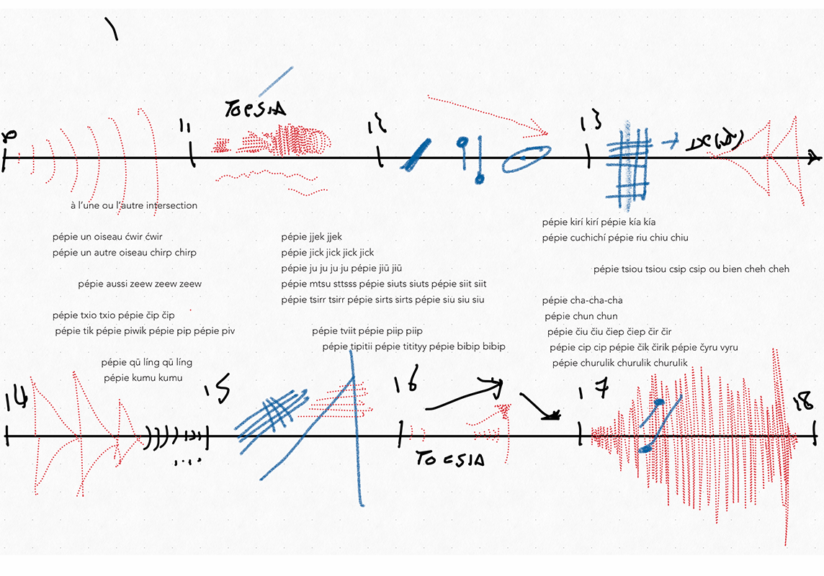 11
POESIA
12
13
à l'une ou l'autre intersection
pépie un oiseau ćwir ćwir
pépie un autre oiseau chirp chirp
pépie aussi zeew zeew zeew
pépie txio txio pépie čip čip
pépie tik pépie piwik pépie pip pépie piv
pépie qū líng qū líng
pépie kumu kumu
pépie jjek jjek
pépie jick jick jick jick
pépie ju ju ju ju pépie jiū jiū
pépie mtsu sttsss pépie siuts siuts pépie siit siit
pépie tsirr tsirr pépie sirts sirts pépie siu siu siu
pépie tviit pépie piip piip
pépie tipitii pépie titityy pépie bibip bibip
pépie kirí kirí pépie kía kía
pépie cuchichí pépie riu chiu chiu
pépie tsiou tsiou csip csip ou bien cheh cheh
pépie cha-cha-cha
pépie chun chun
pépie čiu čiu čiep čiep čir čir
pépie cip cip pépie čik čirik pépie čyru vyru
pépie churulik churulik churulik
14
15
16
17
18
POESIA